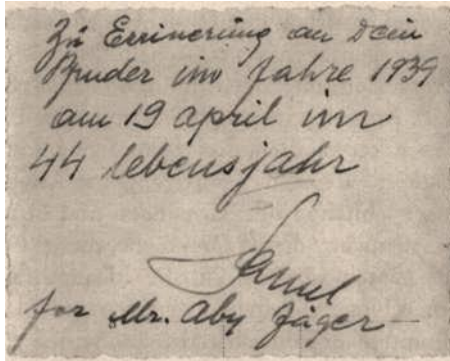 Zu Errinerung an Dein
Bruder im Jahre 1939
am 19 april im
44 lebensjahr
Samel
for Mr. Aby Jäger